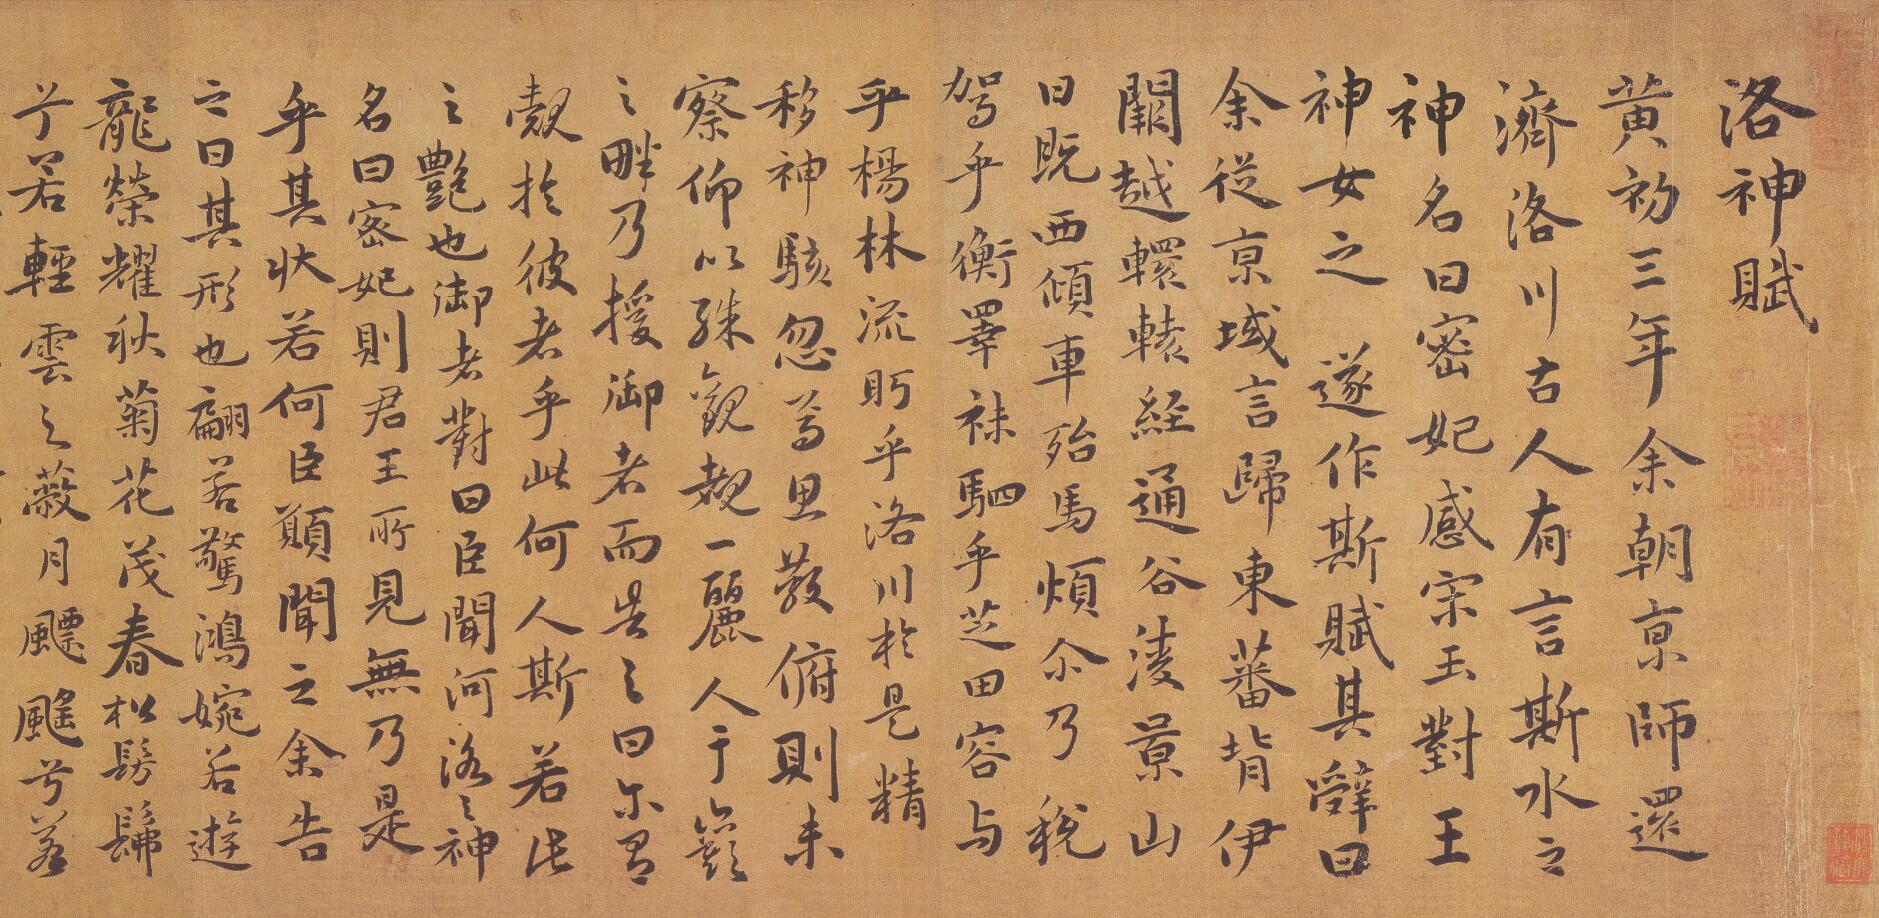 洛神賦
黃初三年余朝京師還
濟洛川古人有言斯水之
神名曰宓妃感宋玉對王
神女之遂作斯賦其辭曰
余從京域言歸東蕃背伊
闕越轘轅經通谷淩景山
日既西傾車殆馬煩尒乃稅
駕乎衡睪秣駟乎芝田容与
乎楊林流眄乎洛川於是精
移神駭忽焉思散俯則未
察仰以殊觀覩一麗人于巖
之畔乃援御者而告之曰尔有
覿於彼者乎此何人斯若此
之艷也御者對曰臣聞河洛之神
名曰宓妃則君王所見無乃是
乎其狀若何臣願聞之余告
之曰其形也翩若驚鴻婉若遊
龍榮耀秋菊花茂春松髣髴
兮若輕雲之蔽月飄颻兮若